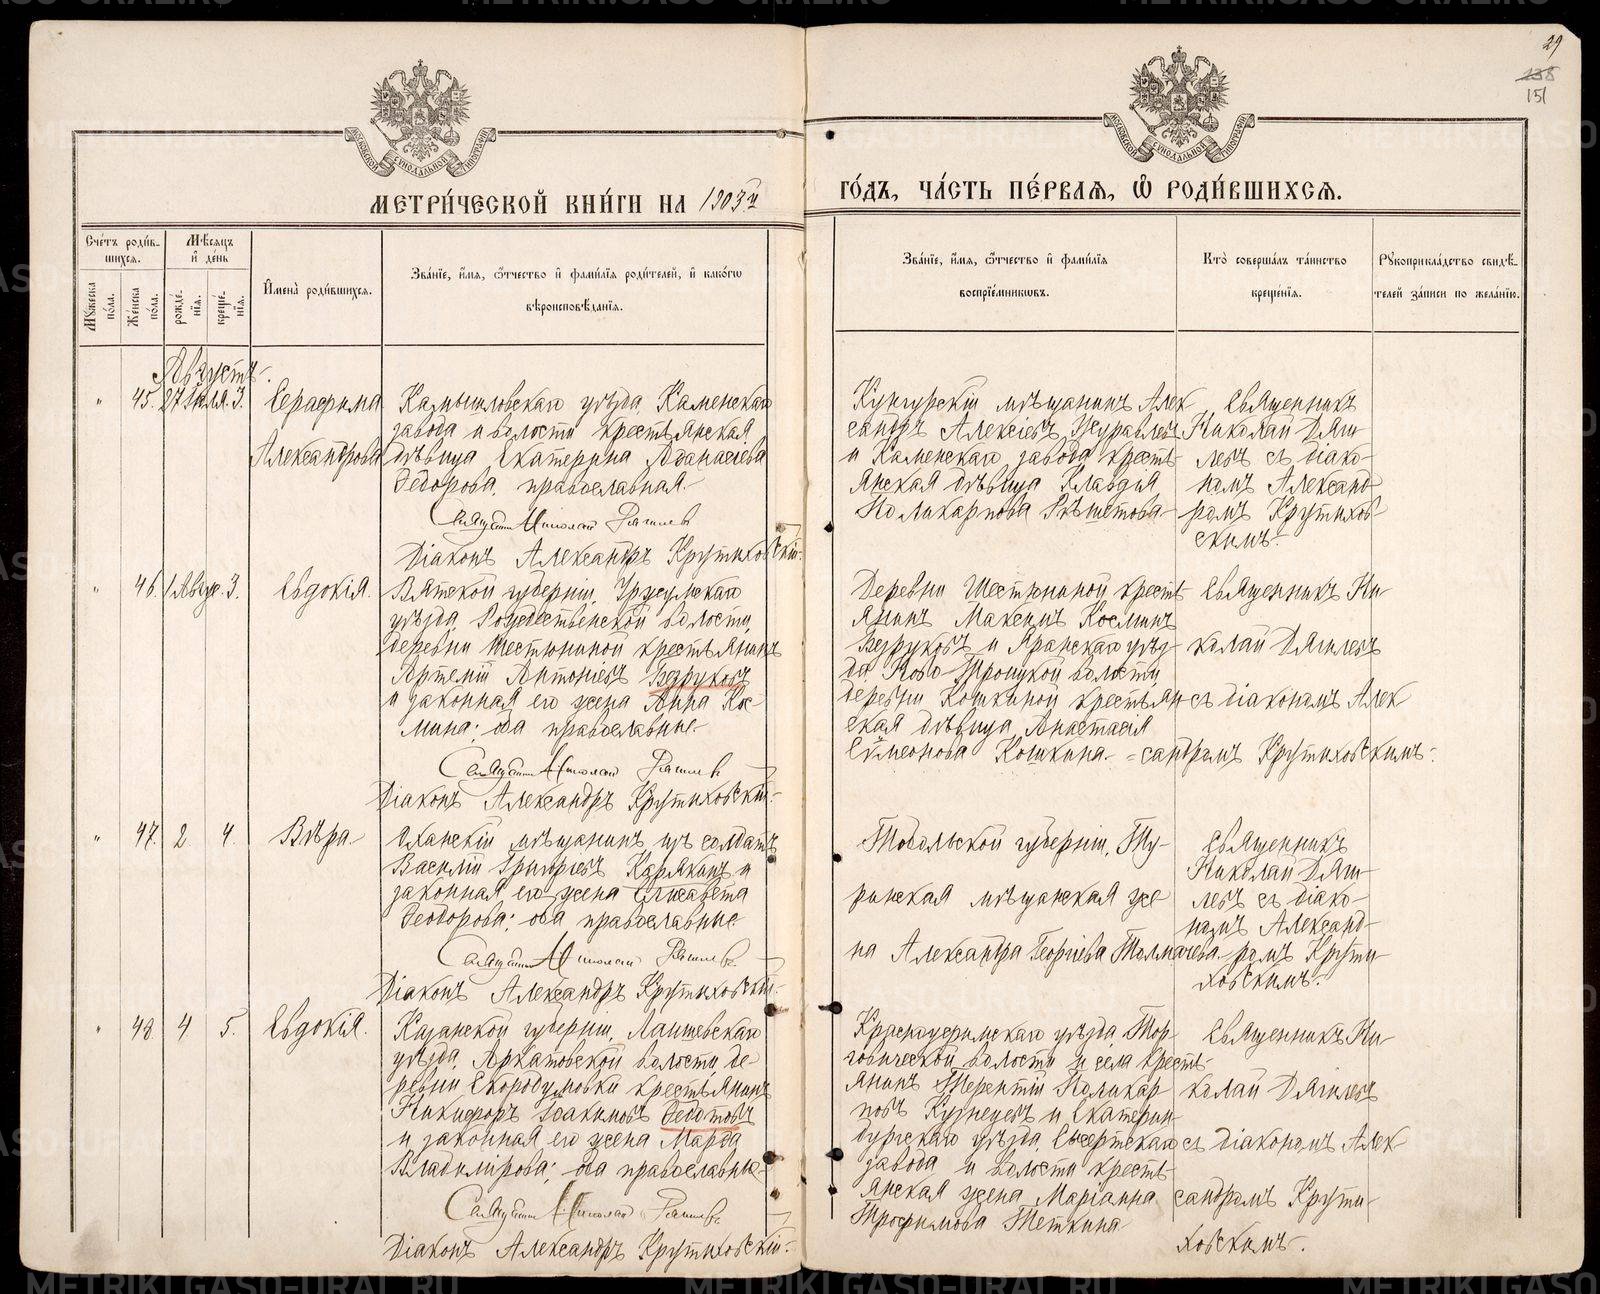 29
238
151
МОСКОВСКОЙ СѴНОДАЛЬНОЙ ТИПОГРАФІИ
МОСКОВСКОЙ СѴНОДАЛЬНОЙ ТИПОГРАФІИ
МЕТРИ́ЧЕСКОЙ КНИ́ГИ НА 1903й
ГО́ДЪ, ЧА́СТЬ ПЕ́РВАѦ, Ѽ РОДИ́ВШИХСѦ.
Сче́тъ роди́в-
шихсѧ.
Мѣ́сѧцъ
и҆ де́нь
Мꙋ́жеска
по́ла.
Же́нска
по́ла.
рожде́-
нїѧ.
креще́-
нїѧ.
И҆мена̀ роди́вшихсѧ.
Зва́нїе, и҆́мѧ, ѻ҆́тчество и҆ фами́лїѧ роди́телей, и҆ како́гѡ
вѣроисповѣ́данїѧ.
Зва́нїе, и҆́мѧ, ѻ҆́тчество и҆ фами́лїѧ
воспрїе́мникѡвъ.
Кто̀ соверша́лъ та́инство
креще́нїѧ.
Рꙋкоприкла́дство свидѣ́-
телей за́писи по жела́нїю.
Августъ.
" 45. 27 Іюля. 3.
Серафима
Александрова
Камышловскаго уѣзда, Каменскаго
завода и волости крестьянская
дѣвица Екатерина Аѳанасіева
Ѳедорова, православная.
Священникъ Николай Дягилевъ
Діаконъ Александръ Крутиховскій.
Кунгурскій мѣщанинъ Алек
сандръ Алексіевъ Журавлевъ
и Каменскаго завода кресть-
янская дѣвица Клавдія
Поликарпова Рѣшетова
Священникъ
Николай Дяги
левъ съ діако-
номъ Александ-
ромъ Крутихов
скимъ.
" 46. 1 Авгус. 3.
Евдокія.
Вятской губерніи, Уржумскаго
уѣзда, Рождественской волости,
деревни Шестюниной крестьянинъ
Артемій Антоніевъ Безруковъ
и законная его жена Анна Кос-
мина; оба православные.
Священникъ Николай Дягилевъ
Діаконъ Александръ Крутиховскій.
Деревни Шестюниной кресть-
янинъ Максимъ Косминъ
Безруковъ и Яранскаго уѣз-
да, Ново-Троицкой волости,
деревни Кошкиной крестьян-
ская дѣвица Анастасія
Сѵмеонова Кошкина.
Священникъ Ни-
колай Дягилевъ
съ діакономъ Алек
=сандромъ Крутиховскимъ.
" 47. 2 4.
Вѣра
Оханскій мѣщанинъ изъ солдатъ
Василій Григорьевъ Карякинъ и
законная его жена Елисавета
Ѳеодорова; оба православные
Священникъ Николай Дягилевъ
Діаконъ Александръ Крутиховскій.
Тобольской губерніи, Ту-
ринская мѣщанская же
на Александра Георгіева Толмачева.
Священникъ
Николай Дяги-
левъ съ діако-
номъ Александ-
ромъ Крути-
ховскимъ.
" 48. 4 5.
Евдокія.
Казанской губерніи, Лаишевскаго
уѣзда, Аркатовской волости, де-
ревни Скородумовки крестьянинъ
Никифоръ Іоакимовъ Ѳедотовъ
и законная его жена Марѳа
Владимірова; оба православные
Священникъ Николай Дягилевъ
Діаконъ Александръ Крутиховскій.
Красноуфимскаго уѣзда, Тор-
говической волости и села кресть-
янинъ Терентій Поликар-
повъ Кузнецовъ и Екатерин-
бургскаго уѣзда, Сысертскаго
завода и волости кресть-
янская жена Маріанна
Трофимова Теткина
Священникъ Ни-
колай Дягилевъ
съ діакономъ Алек-
сандромъ Крути-
ховскимъ.
METRIKI.GASO-URAL.RU